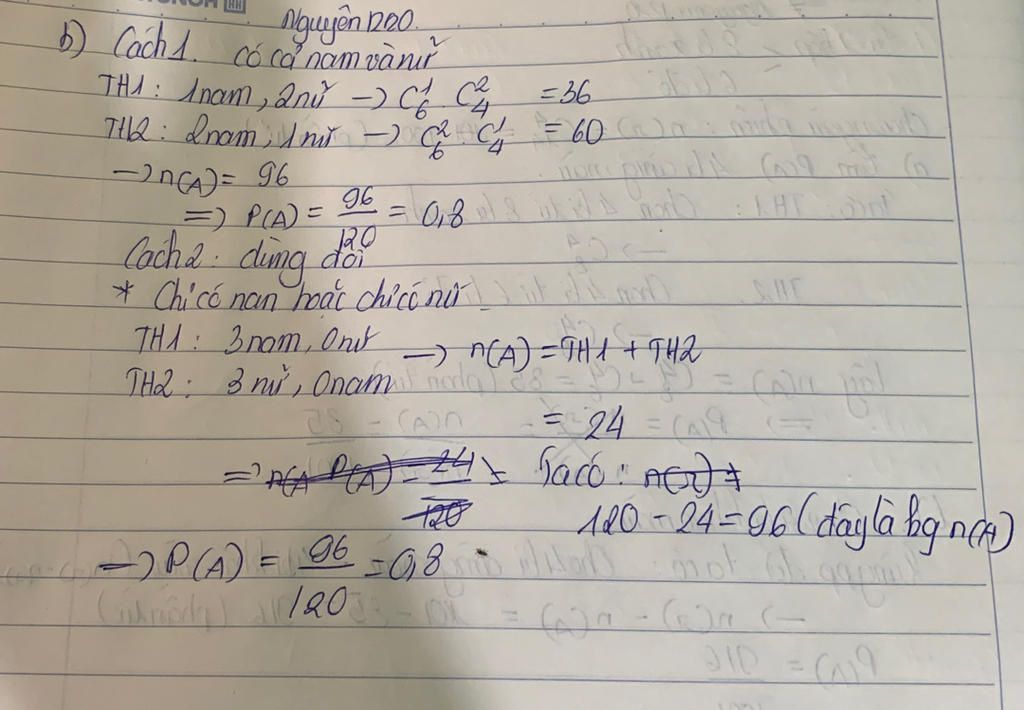 Nguyên D20.
b) Cách 1. có cả nam và nữ
TH1 : 1 nam, 2 nữ → C₆¹ . C₄² = 36
TH2 : 2 nam, 1 nữ → C₆² . C₄¹ = 60
→ n(A) = 96
=> P(A) = 96/120 = 0,8
Cách 2 : dùng đối
* Chỉ có nan hoặc chỉ có nữ
TH1 : 3 nam, 0 nữ → n(A) = TH1 + TH2
TH2 : 3 nữ, 0 nam
= 24
=> n(A P(A) = 24/120 Ta có : n(Ω) =
120 - 24 = 96 (đây là bg n(A)
→ P(A) = 96/120 = 0,8